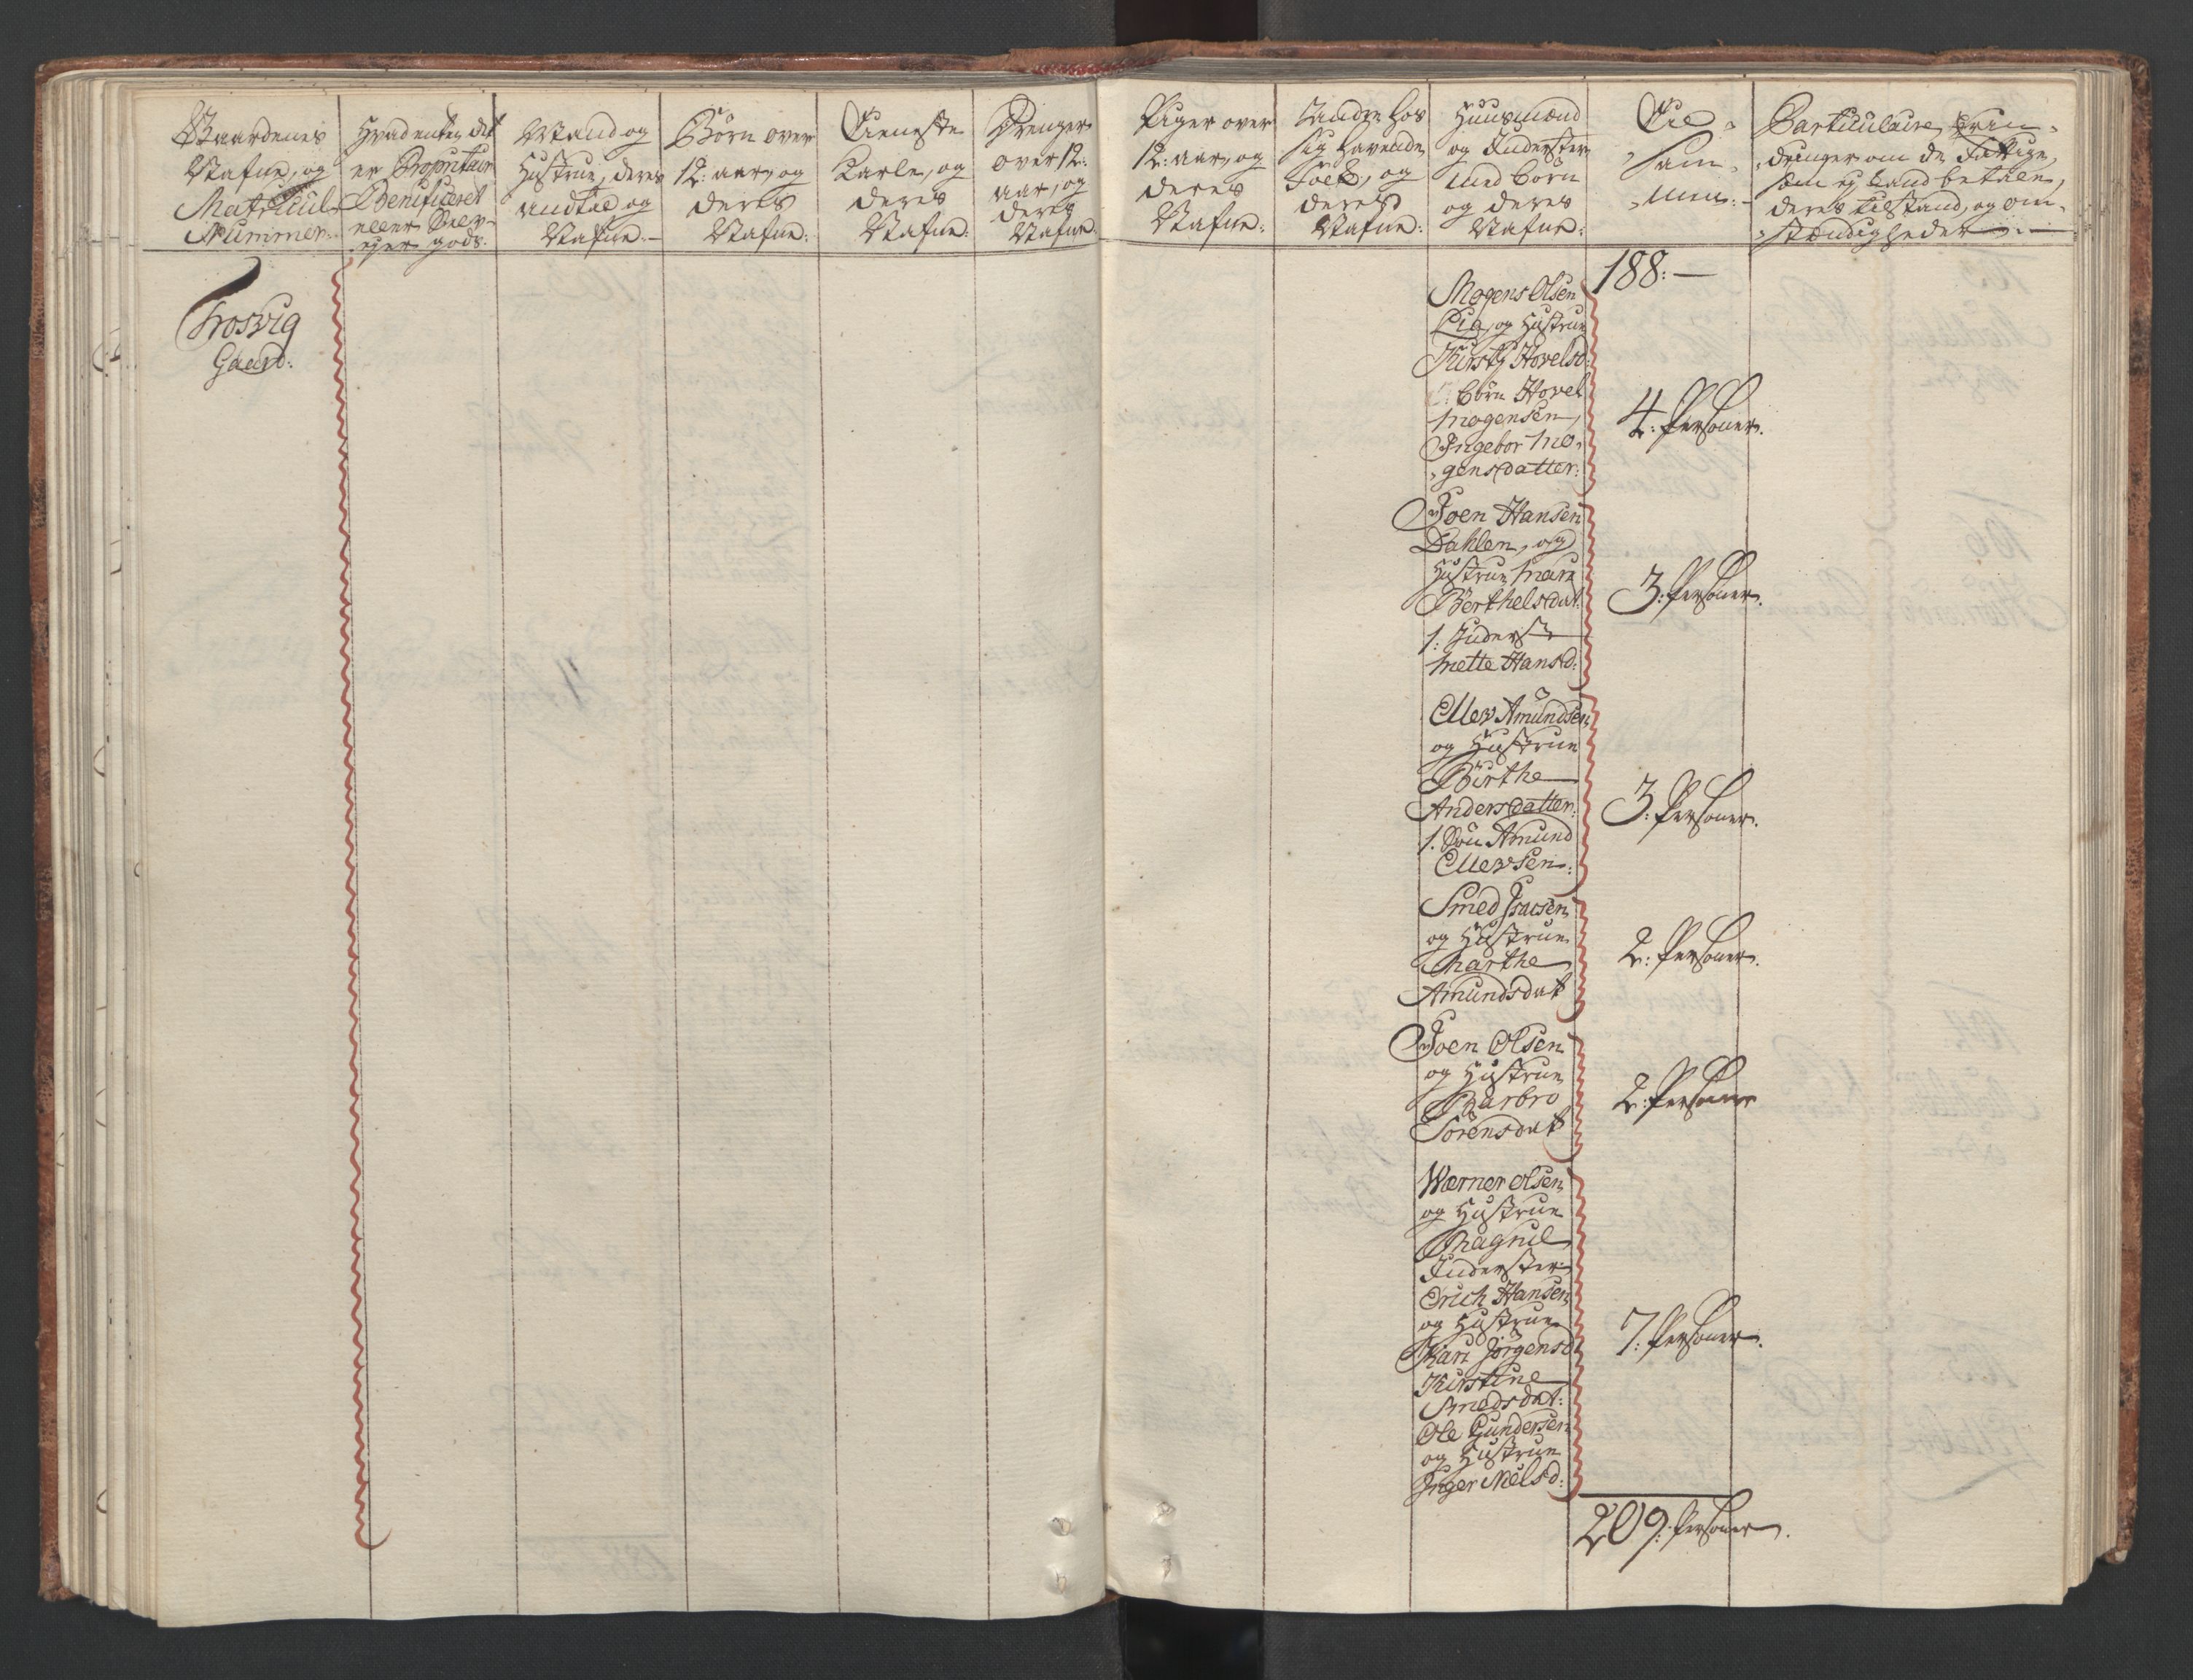 Gaardenes
Nafne, og
Matricul
Nummer.
Hvad enten det
er Propritair
Benificeret
eller Selv-
eyer gods.
Mand og
Hustrue, deres
andtal og
Nafne.
Börn over
12: aar, og
deres
Nafne:
Tieneste
Karle, og
deres
Nafne:
Drenger
over 12:
aar, og
deres
Nafne:
Piger over
12: aar, og
deres
Nafne:
Andre hos
sig havende
Folk, og
deres
Nafne:
Huusmænd
og Inderster
med börn
og deres
Nafne:
Til-
sam-
men:
Particulaire Erin-
dringer om de Fattige,
som ej kand betale,
deres tilstand, og om-
stændigheder
Trosvig
Gaard:
188:
Mogens Olsen
Lie, og Hustrue
Kirsti Hovelsd:
börn Hovel
Mogensen,
Ingebor Mo-
gensdatter:
4: Personer.
Joen Hansen
Dahlen, og
Hustrue Mari
Berthelsdat:
1: Inderst
Mette Hansd:
3: Personer.
Ellev Amundsen
og Hustrue
Birthe
Andersdatter:
1. Sön Amund
Ellevsen:
3: Personer.
Smed Isacsen
og Hustrue
Marthe
Amundsdat
2: Personer.
Joen Olsen
og Hustrue
Barbro
Sörensdat
2: Personer
Werner Olsen
og Hustrue
Ragnil
Inderster
Erich Hansen
og Hustrue
Kari Jörgensd
Kirstine
Smedsdat:
Ole Gundersen
og Hustrue
Inger Nielsd:
7: Personer.
209: Personer.